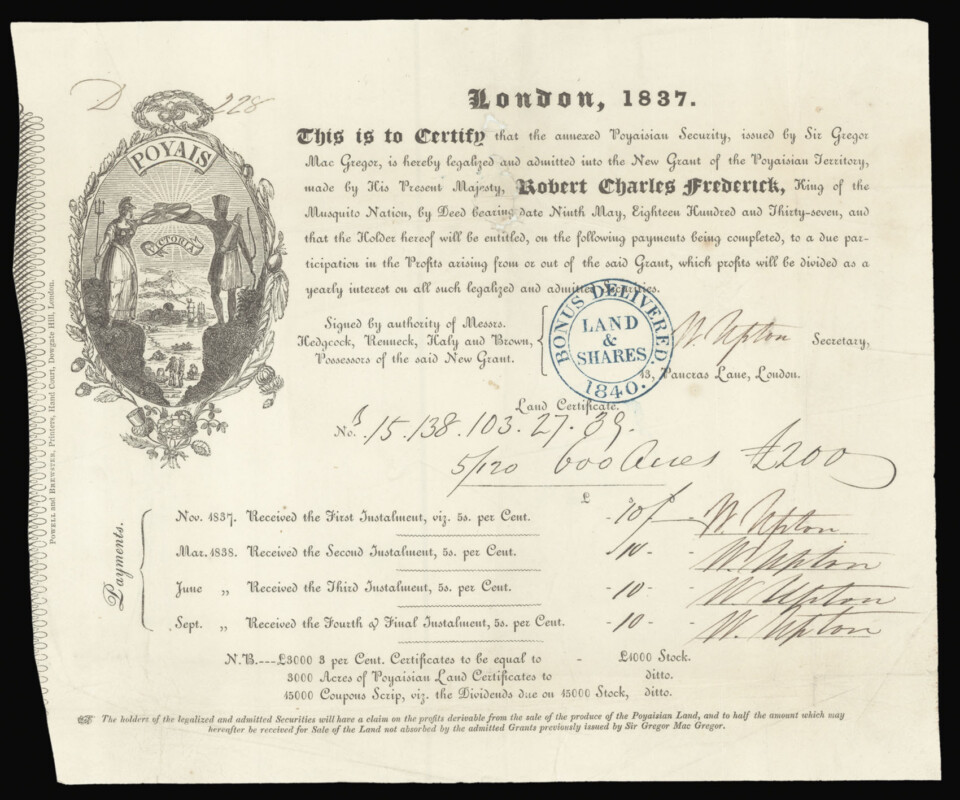 D 228
London, 1837.
POYAIS
VICTORIA
This is to Certify that the annexed Poyaisian Security, issued by Sir Gregor
Mac Gregor, is hereby legalized and admitted into the New Grant of the Poyaisian Territory,
made by His Present Majesty, Robert Charles Frederick, King of the
Musquito Nation, by Deed bearing date Ninth May, Eighteen Hundred and Thirty-seven, and
that the Holder hereof will be entitled, on the following payments being completed, to a due par-
ticipation in the Profits arising from or out of the said Grant, which profits will be divided as a
yearly interest on all such legalized and admitted Securities.
Signed by authority of Messrs.
Hedgcock, Renneck, Haly and Brown,
Possessors of the said New Grant.
W. Upton Secretary,
43, Pancras Lane, London.
BONUS DELIVERED.
LAND
&
SHARES
1840.
Land Certificate.
Nos. 15.138.103.27.39.
5/120 600 Acres £200
Payments.
£ s d
Nov. 1837. Received the First Instalment, viz. 5s. per Cent. - 10/- W. Upton
Mar. 1838. Received the Second Instalment, 5s. per Cent. - 10 - - W. Upton
June „ Received the Third Instalment, 5s. per Cent. - 10 - - W Upton
Sept. „ Received the Fourth & Final Instalment, 5s. per Cent. - 10 - - W. Upton
N.B.---£3000 3 per Cent. Certificates to be equal to - £1000 Stock.
3000 Acres of Poyaisian Land Certificates to ditto.
45000 Coupons Scrip, viz. the Dividends due on 45000 Stock, ditto.
The holders of the legalized and admitted Securities will have a claim on the profits derivable from the sale of the produce of the Poyaisian Land, and to half the amount which may
hereafter be received for Sale of the Land not absorbed by the admitted Grants previously issued by Sir Gregor Mac Gregor.
Powell and Brewster, Printers, Hand Court, Dowgate Hill, London.